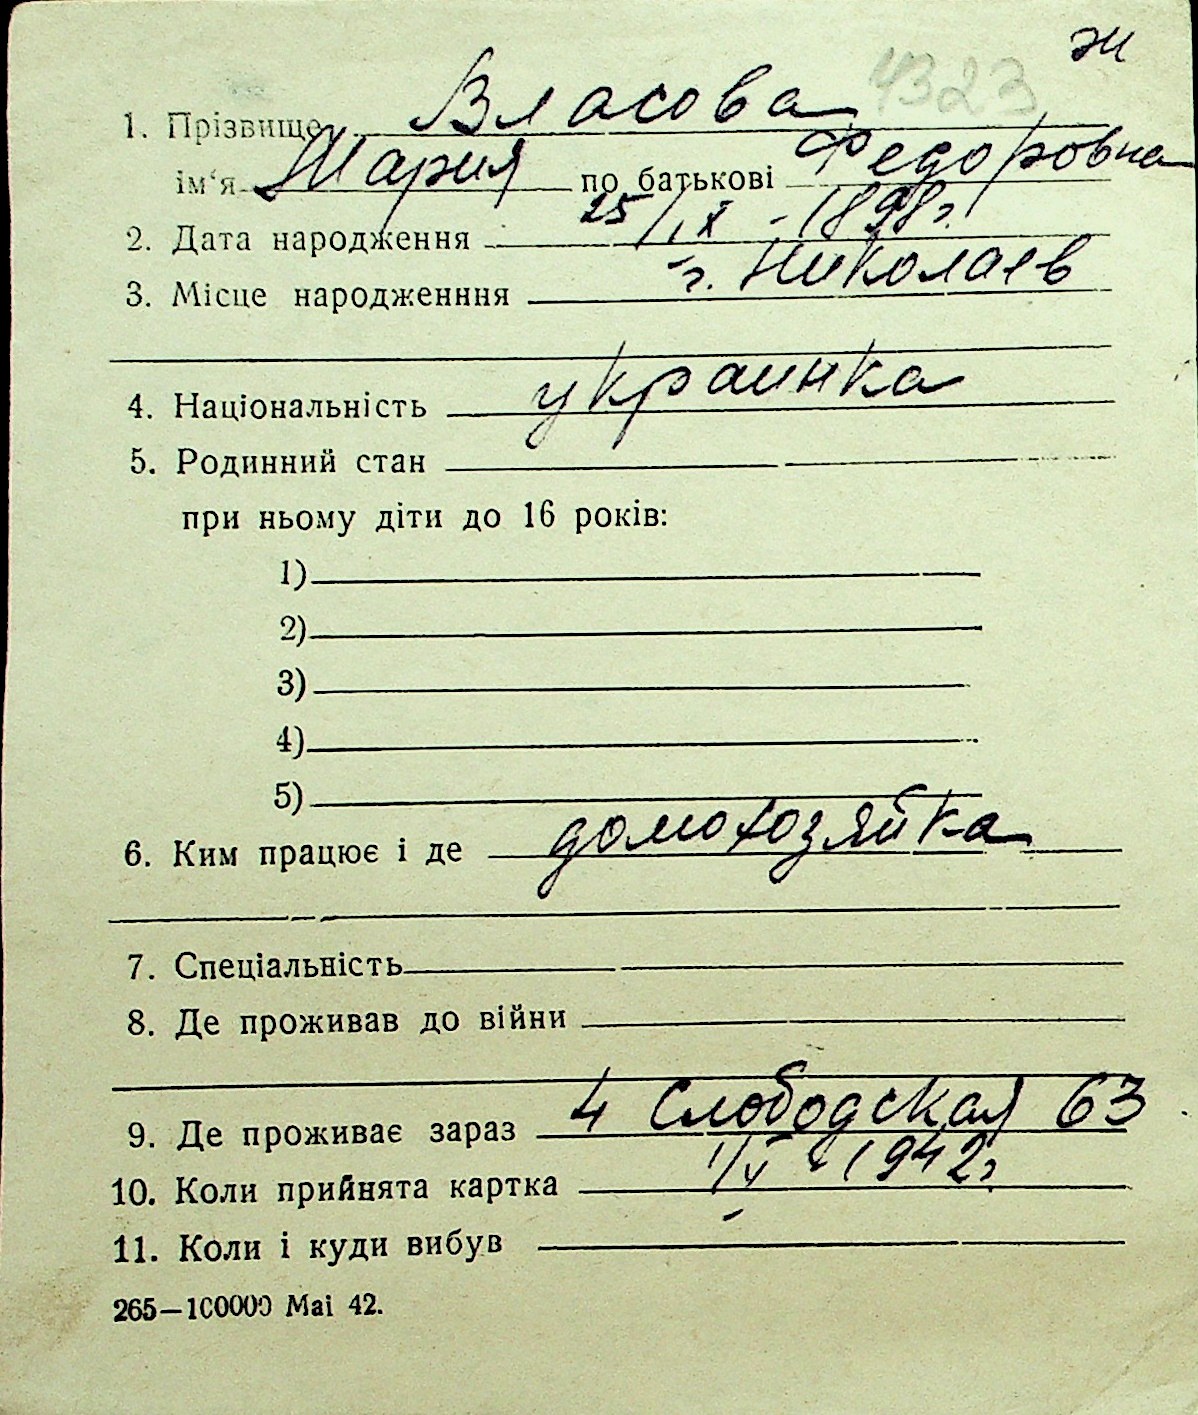 ж
4323
1. Прізвище Власова
ім‘я Мария по батькові Федоровна
2. Дата народження 25/IX - 1898г.
3. Місце народженння г. Николаев
4. Національність украинка
5. Родинний стан
при ньому діти до 16 років:
1)
2)
3)
4)
5)
6. Ким працює і де домохозяйка
7. Спеціальність
8. Де проживав до війни
9. Де проживає зараз 4 Слободская 63
10. Коли прийнята картка 1/V - 1942г.
11. Коли і куди вибув
265—100000 Mai 42.